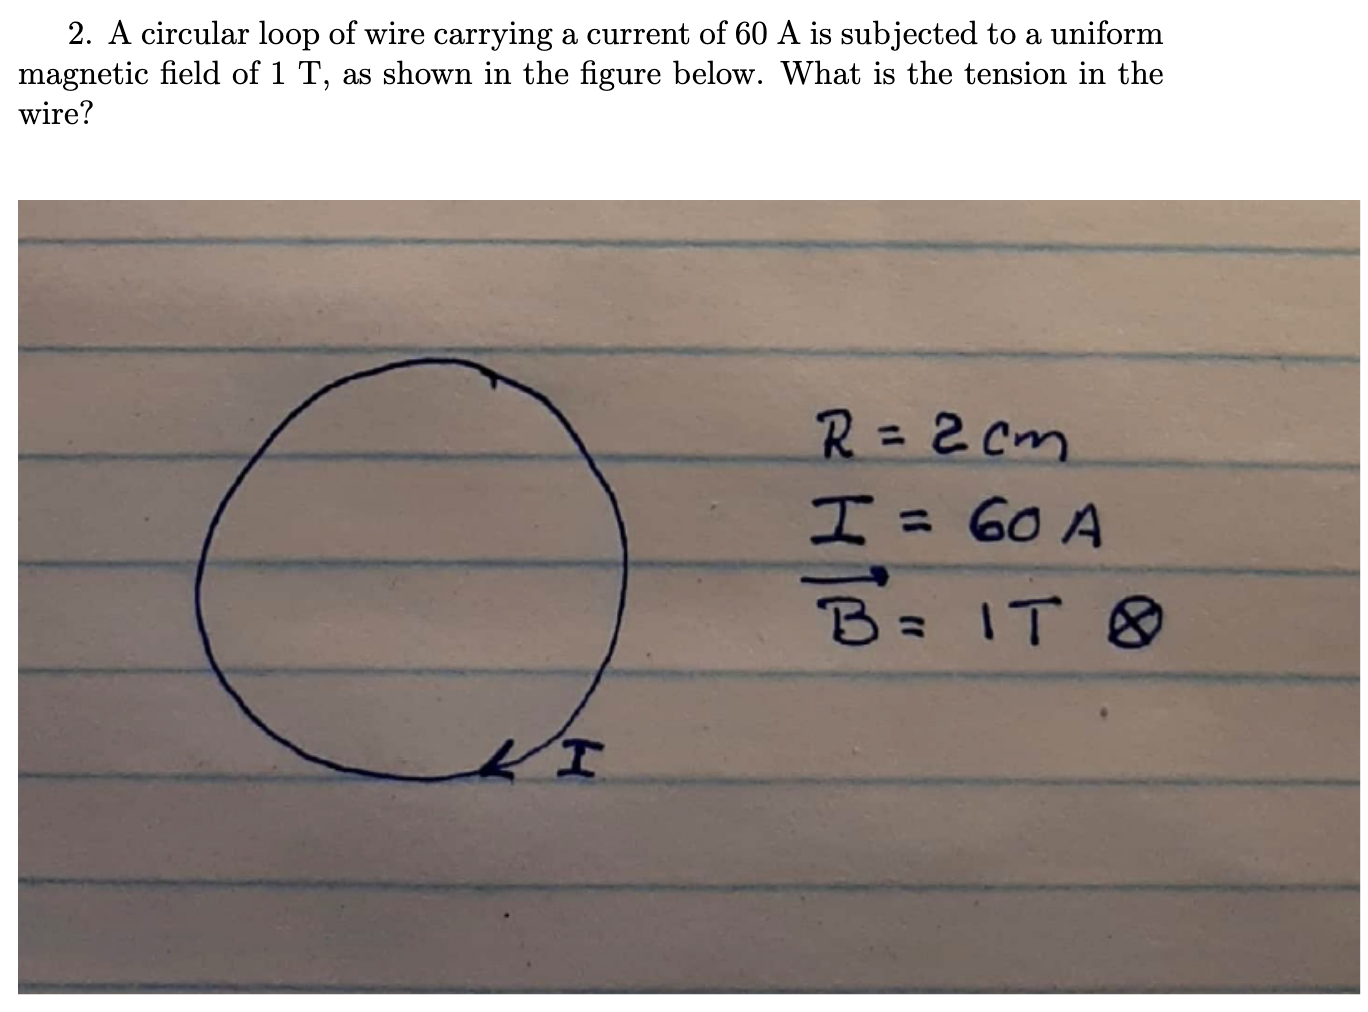 2. A circular loop of wire carrying a current of 60 A is subjected to a uniform
magnetic field of 1 T, as shown in the figure below. What is the tension in the
wire?
R = 2 cm
I = 60 A
B⃗ = 1T ⊗
I